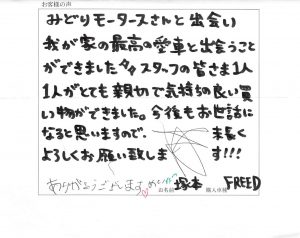 お客様の声
みどりモータースさんと出会い
我が家の最高の愛車と出会うこと
ができました!!スタッフの皆さま1人
1人がとても親切で気持ちの良い買
い物ができました。今後もお世話に
なると思いますので、末長く
よろしくお願い致します!!!
ありがとうございます
お名前 塚本 購入車種 FREED